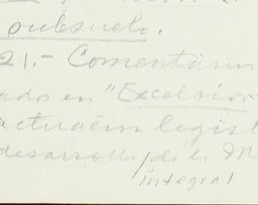 subsuelo.
21.- Comentarios
ado en "Excelsior
actuación legisl
desarrollo/de la M
integral